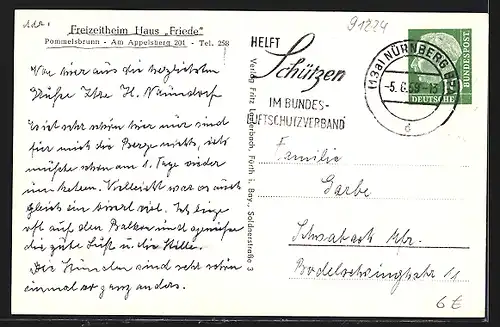 91224
Freizeitheim Haus „Friede"
Pommelsbrunn - Am Appelsberg 201 - Tel. 258
Von hier aus die herzlichsten
Grüße Ihre H. Naundorf
Es ist sehr schön hier nur sind
für mich die Berge nichts, ich
möchte schon am 1. Tage wieder
umkehren. Vielleicht war es auch
gleich ein bissel viel. Ich liege
oft auf dem Balkon und genieße
die gute Luft u. die Stille.
Die Stunden sind sehr schön
einmal so ganz anders.
Verlag Fritz Lauterbach, Fürth i. Bay., Soldnerstraße 3
HELFT
Schützen
IM BUNDES-
LUFTSCHUTZVERBAND
(13a) NÜRNBERG
-5.6.59-18
d
DEUTSCHE
BUNDESPOST
Familie
Garbe
Schwabach Nbr.
Bodelschwinghstr 11
6€